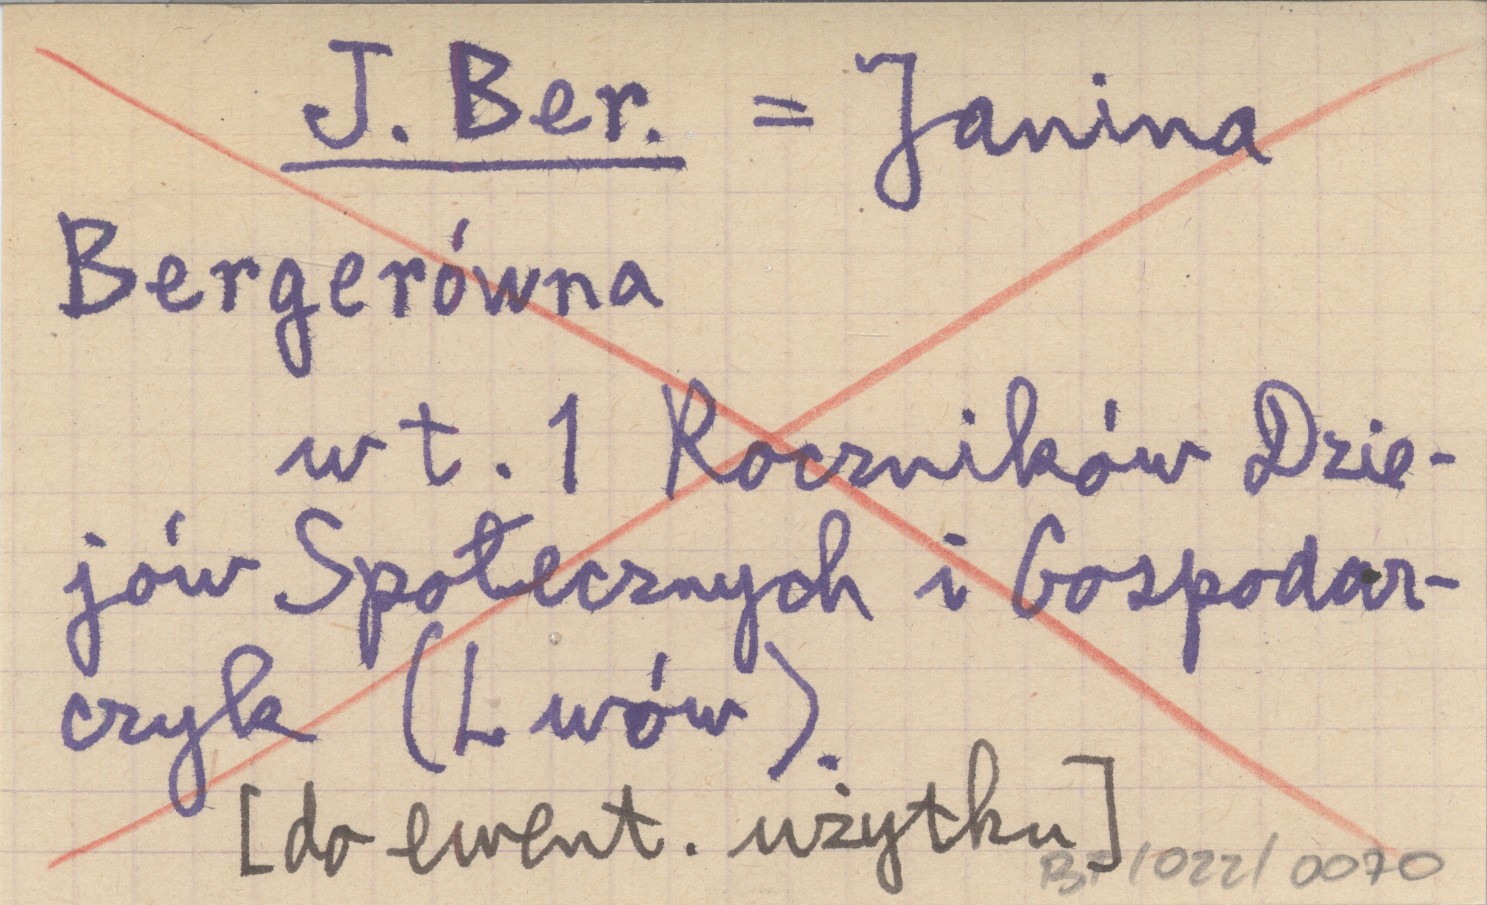 J. Ber. = Janina
Bergerówna
w t. 1 Roczników Dzie-
jów Społecznych i Gospodar-
czyk (Lwów).
[do ewent. użytku]
BF/022/0070